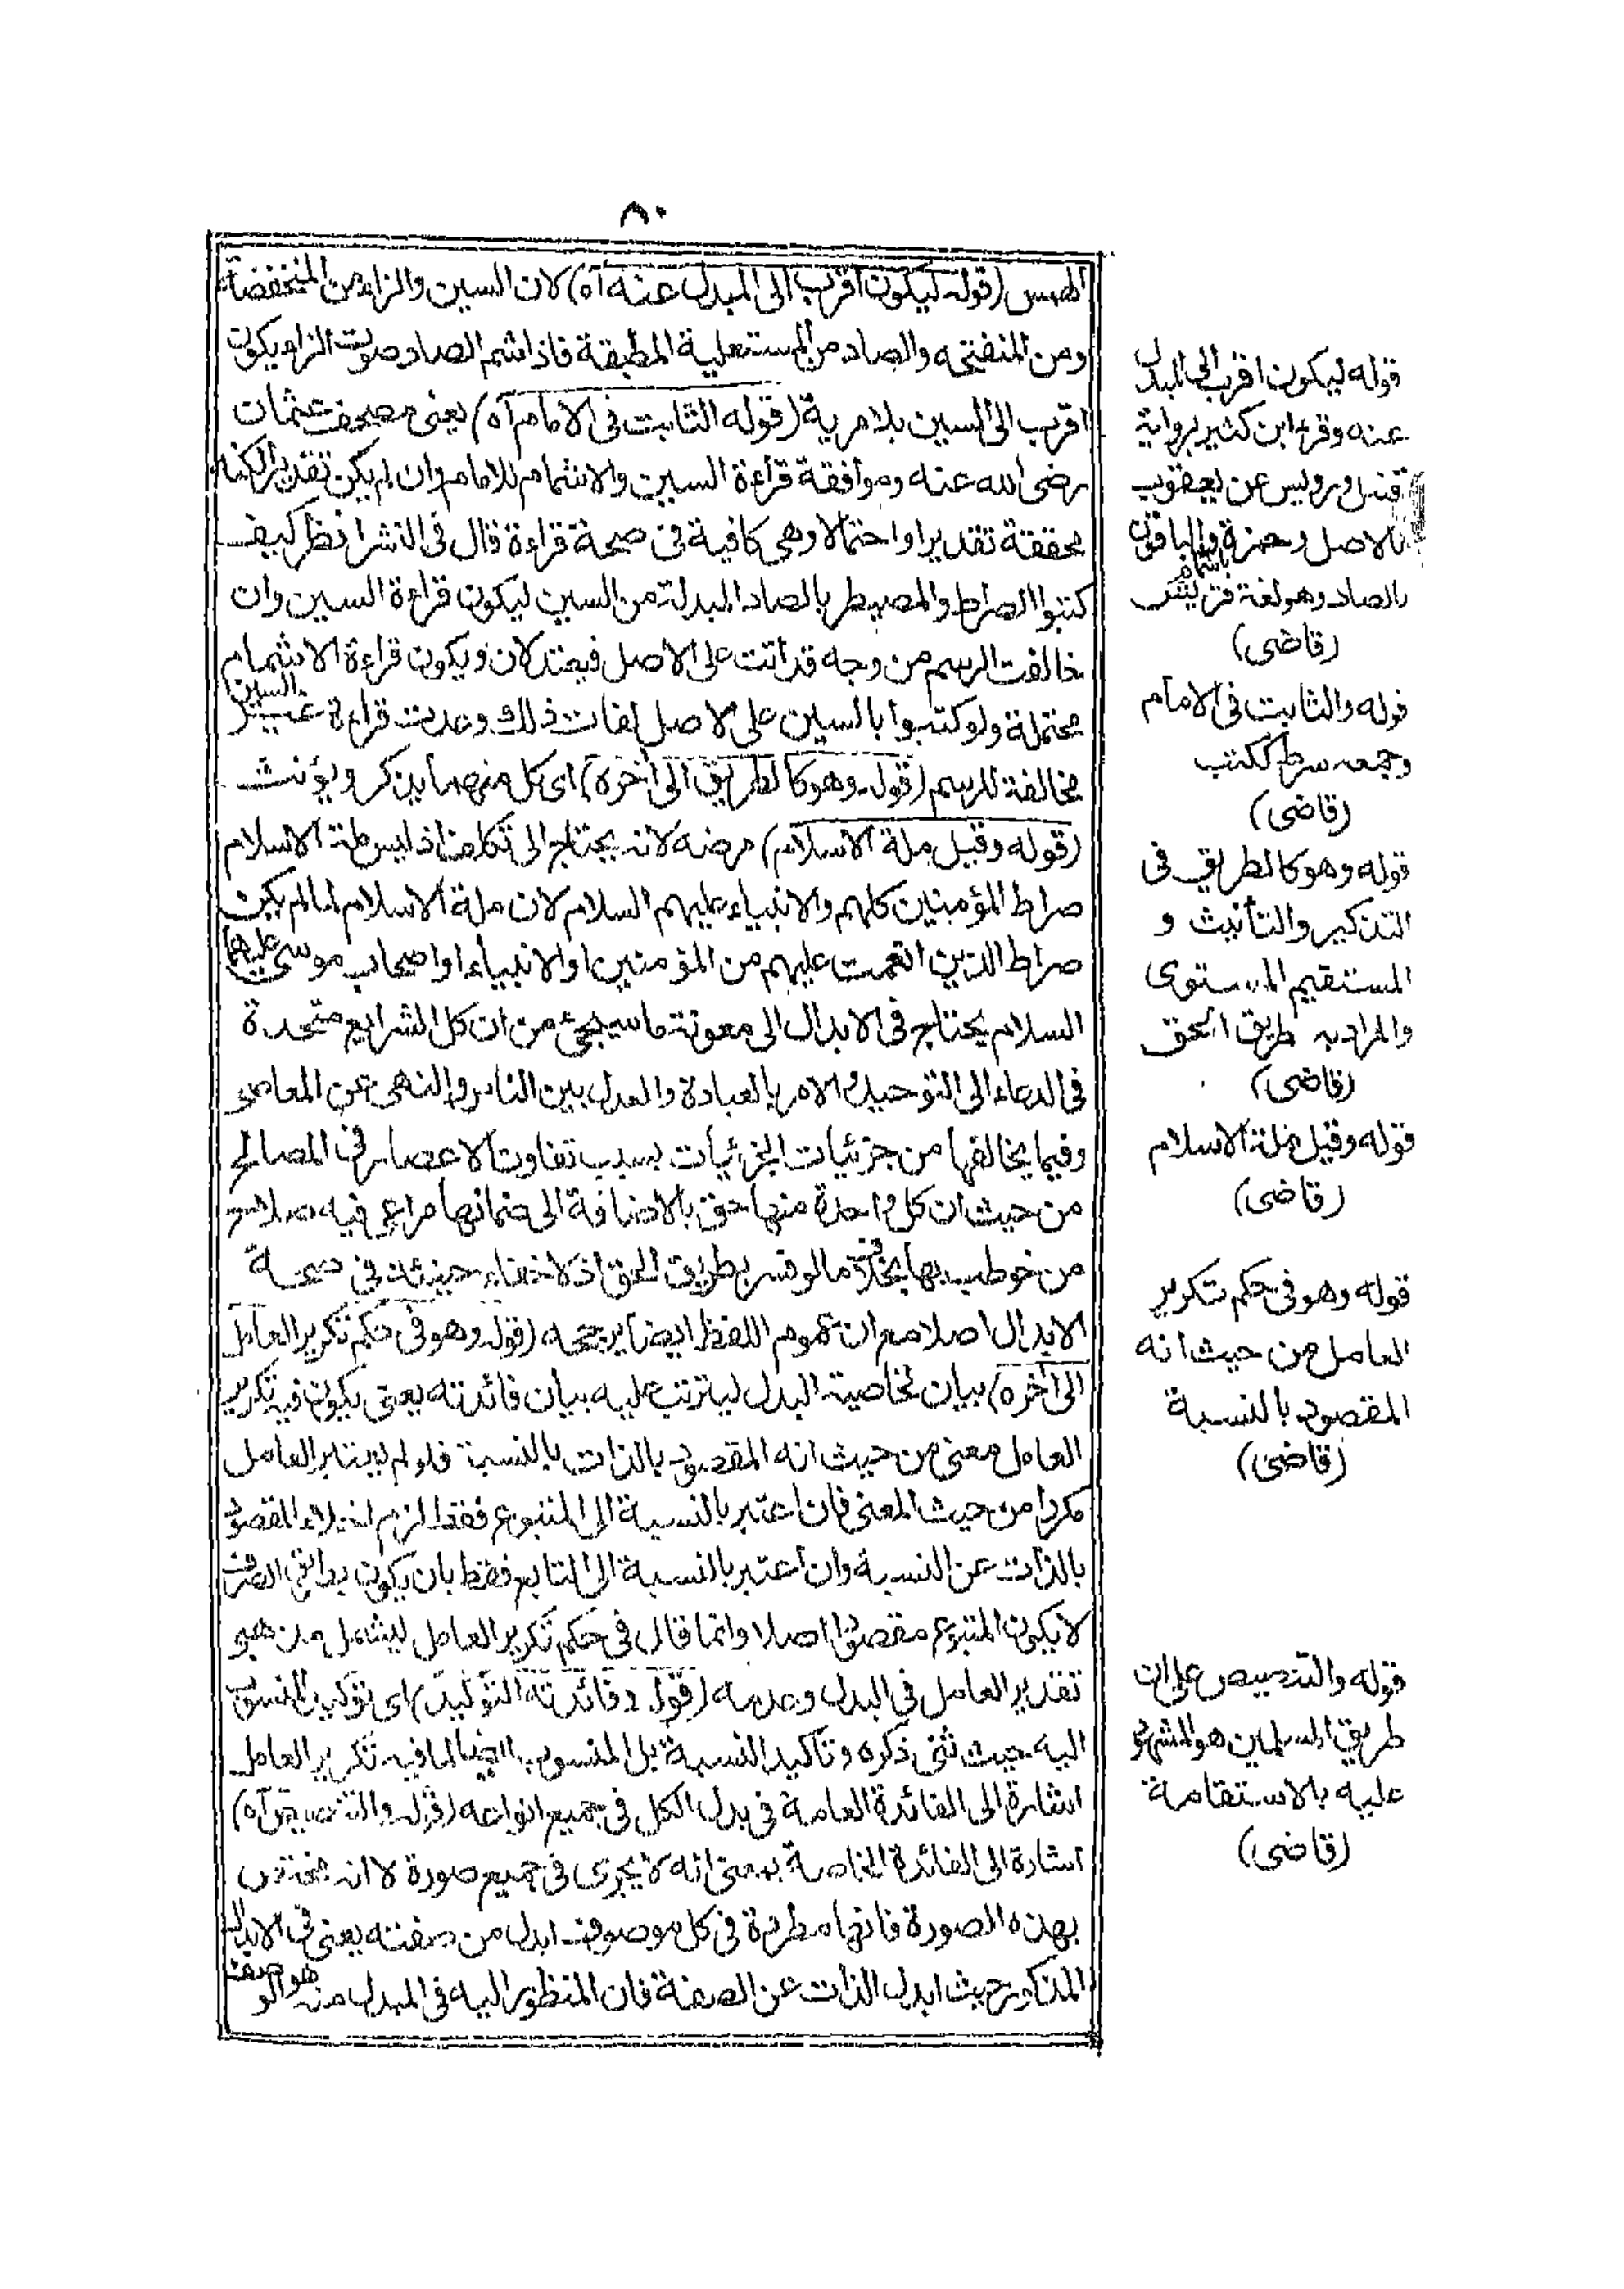 ٨٠
الهمس (قوله ليكون اقرب الى المبدل عنه آه) لان السين والزاء من المنخفضة
ومن المنفتحه والصاد من المستعلية المطبقة فاذا شم الصاد صوت الزاء يكون
اقرب الى السين بلا مرية (قوله الثابت فى الامام آه) يعنى مصحف عثمان
رضى الله عنه وموافقة قراءة السين والاشمام للامام وان لم يكن تقديرا لكنها
محققة تقديرا واحتمالا وهى كافية فى صحة قراءة قال فى النشر انظر كيف
كتبوا الصراط والمصيطر بالصاد المبدلة من السين ليكون قراءة السين وان
خالفت الرسم من وجه قد اتت على الاصل فيعتدلان ويكون قراءة الاشمام
محتملة ولو كتبوا بالسين على الاصل لفات ذلك وعدت قراءة غير السين
مخالفة للرسم (قوله وهو كالطريق الى آخره) اى كل منهما يذكر ويؤنث
(قوله وقيل ملة الاسلام) مرضه لانه يحتاج الى تكلف اذ ليس ملة الاسلام
صراط المؤمنين كلهم والانبياء عليهم السلام لان ملة الاسلام لما لم يكن
صراط الذين انعمت عليهم من المؤمنين او الانبياء او اصحاب موسى عليهما
السلام يحتاج فى الابدال الى معونة ما سيجئ من ان كل الشرايع متحدة
فى الدعاء الى التوحيد والامر بالعبادة والعدل بين الناس والنهى عن المعاصى
وفيما يخالفها من جزئيات الجزئيات بسبب تفاوت الاعصار فى المصالح
من حيث ان كل واحدة منها حق بالاضافة الى ضمانها مراعى فيه صلاح
من خوطب بها بخلاف ما لو فسر بطريق الحق اذ لا خفاء حينئذ فى صحة
الابدال اصلا مع ان عموم اللفظ ايضا يرجحه (قوله وهو فى حكم تكرير العامل
الى آخره) بيان لخاصية البدل ليترتب عليه بيان فائدته يعنى يكون فيه تكرير
العامل معنى من حيث انه المقصود بالذات بالنسبة فلو لم يعتبر العامل
مكررا من حيث المعنى فان اعتبر بالنسبة الى المتبوع فقط لزم اخلاء المقصود
بالذات عن النسبة وان اعتبر بالنسبة الى التابع فقط بان يكون بطريق الصرف
لا يكون المتبوع مقصودا اصلا وانما قال فى حكم تكرير العامل ليشمل مذهبى
تقدير العامل فى البدل وعدمه (قوله وفائدته التوكيد) اى توكيد المنسوب
اليه حيث ثنى ذكره وتاكيد النسبة بل المنسوب ايضا لما فيه تكرير العامل
اشارة الى الفائدة العامة فى بدل الكل فى جميع انواعه (قوله والتنصيص آه)
اشارة الى الفائدة الخاصة بمعنى انه لا يجرى فى جميع صورة لا انه مختص
بهذه الصورة فانها مطردة فى كل موصوف ابدل من صفته يعنى فى الابدال
المذكور حيث ابدل الذات عن الصفة فان المنظور اليه فى المبدل منه هو الوصف
قوله ليكون اقرب الى المبدل
عنه وقرء ابن كثير برواية
قنبل ورويس عن يعقوب
بالاصل وحمزة بالاشمام والباقون
بالصاد وهو لغة قريش
(قاضى)
قوله والثابت فى الامام
وجمعه سرط ككتب
(قاضى)
قوله وهو كالطريق فى
التذكير والتأنيث و
المستقيم المستوى
والمراد به طريق الحق
(قاضى)
قوله وقيل ملة الاسلام
(قاضى)
قوله وهو فى حكم تكرير
العامل من حيث انه
المقصود بالنسبة
(قاضى)
قوله والتنصيص على ان
طريق المسلمين هو المشهود
عليه بالاستقامة
(قاضى)